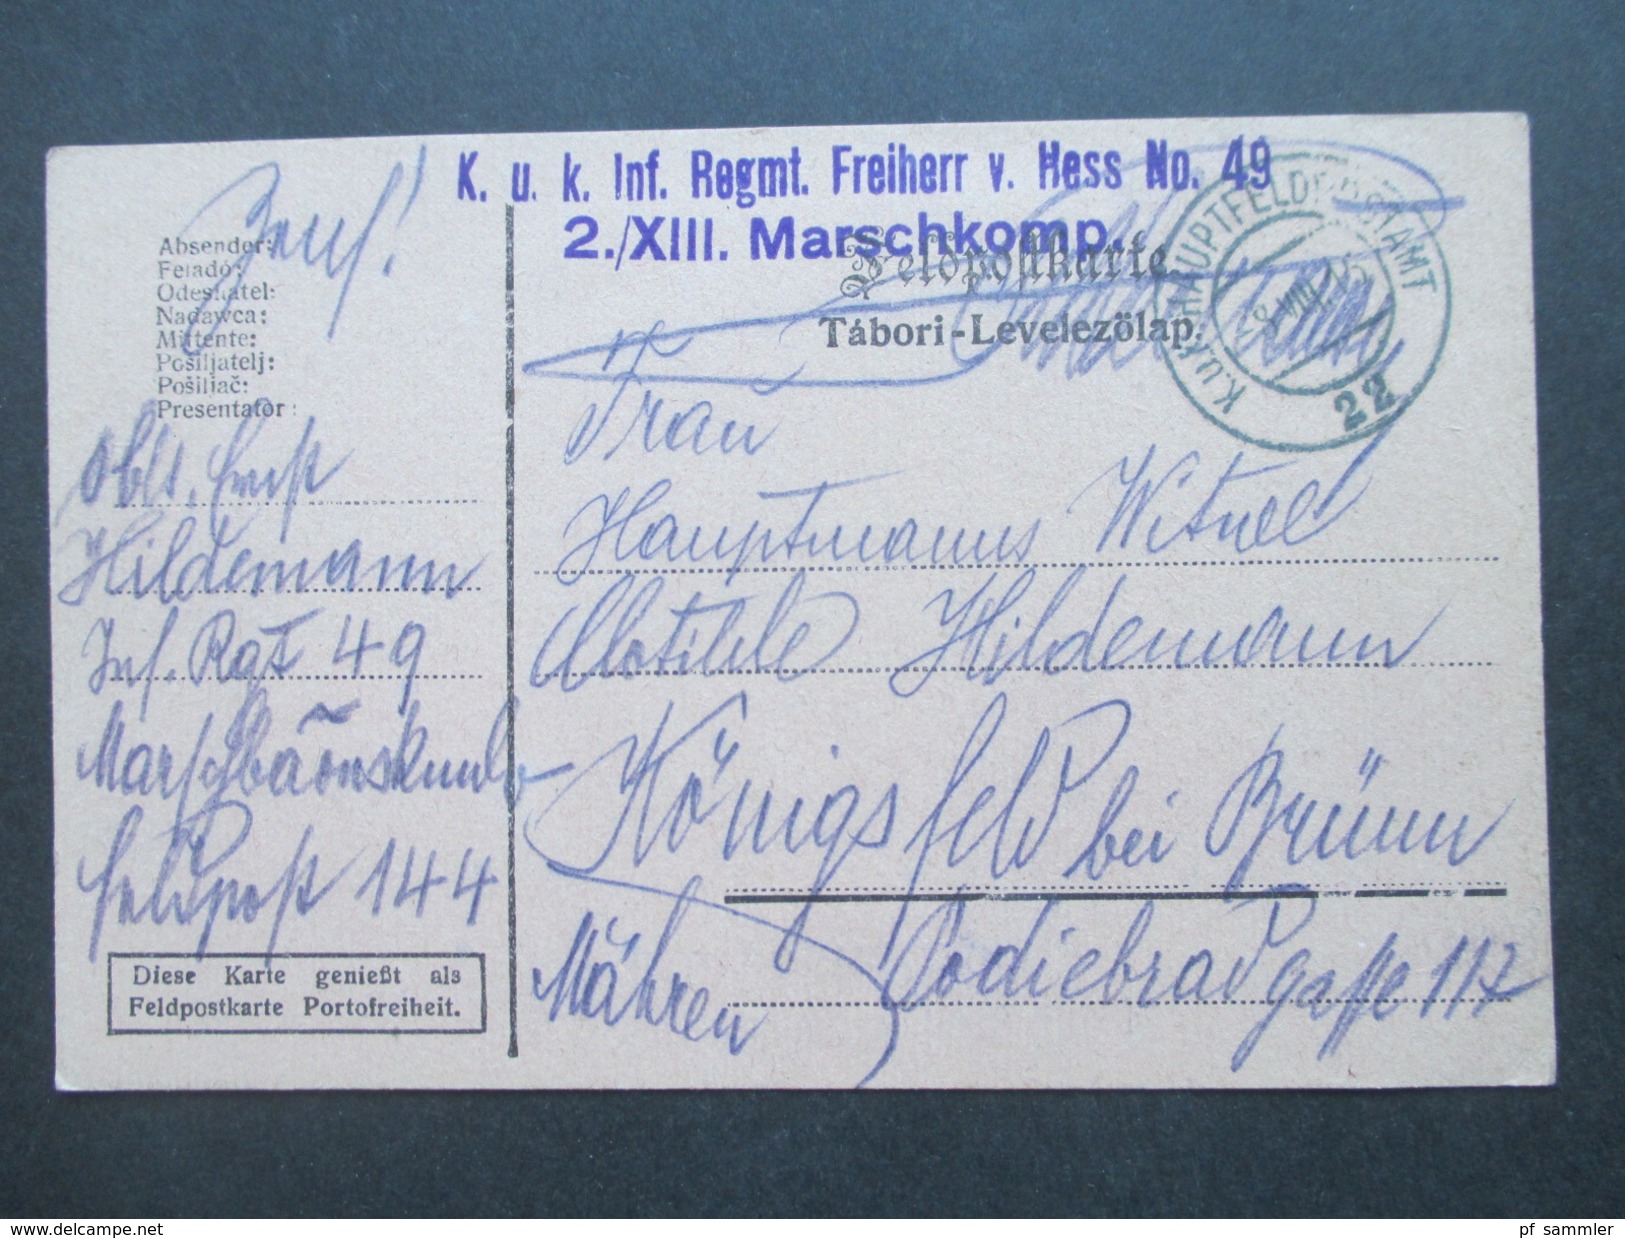 K. u. k. Inf. Regmt. Freiherr v. Hess No. 49
2./XIII. Marschkomp.
Feldpostkarte
Tábori-Levelezőlap.
K.U.K. HAUPTFELDPOSTAMT
22
Absender:
Feladó:
Odesílatel:
Nadawca:
Mittente:
Pošiljatelj:
Pošiljač:
Presentator:
Oblt. Ernst
Hildemann
Inf. Rgt 49
Feldpost 144
Diese Karte genießt als
Feldpostkarte Portofreiheit.
Frau
Hauptmanns
Clotilde Hildemann
Königsfeld bei Brünn
Mähren Podiebradgasse 117
www.delcampe.net
pf_sammler